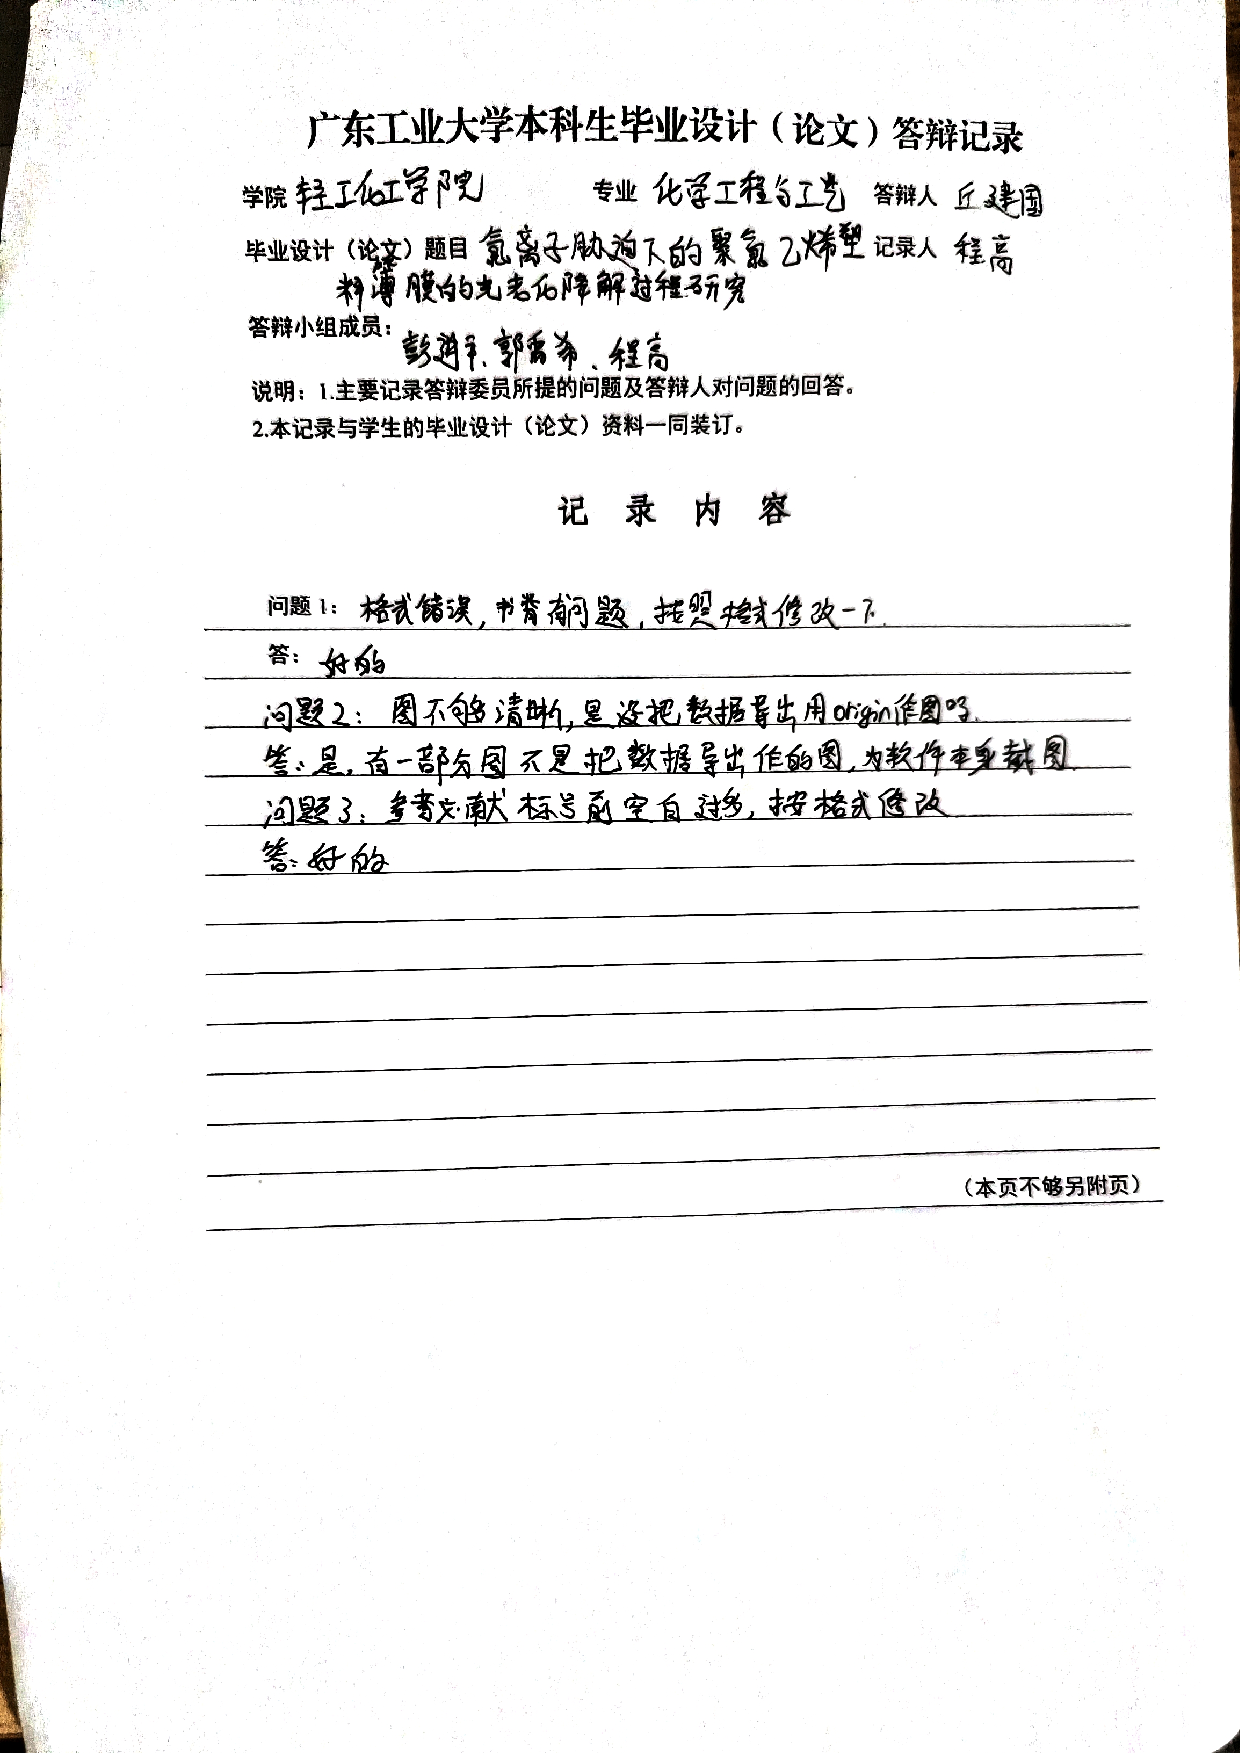 广东工业大学本科生毕业设计（论文）答辩记录
学院 轻工化工学院 专业 化学工程与工艺 答辩人 丘建国
毕业设计（论文）题目 氯离子胁迫下的聚氯乙烯塑 记录人 程高
料薄膜的光老化降解过程研究
答辩小组成员：
彭进平、郭雷希、程高
说明：1.主要记录答辩委员所提的问题及答辩人对问题的回答。
2.本记录与学生的毕业设计（论文）资料一同装订。
记 录 内 容
问题1： 格式错误，书脊有问题，按照格式修改一下.
答： 好的
问题2： 图不够清晰，是没把数据导出用origin作图吗.
答：是，有一部分图不是把数据导出作的图，为软件本身截图.
问题3：参考文献标号前空白过多，按格式修改
答：好的
（本页不够另附页）